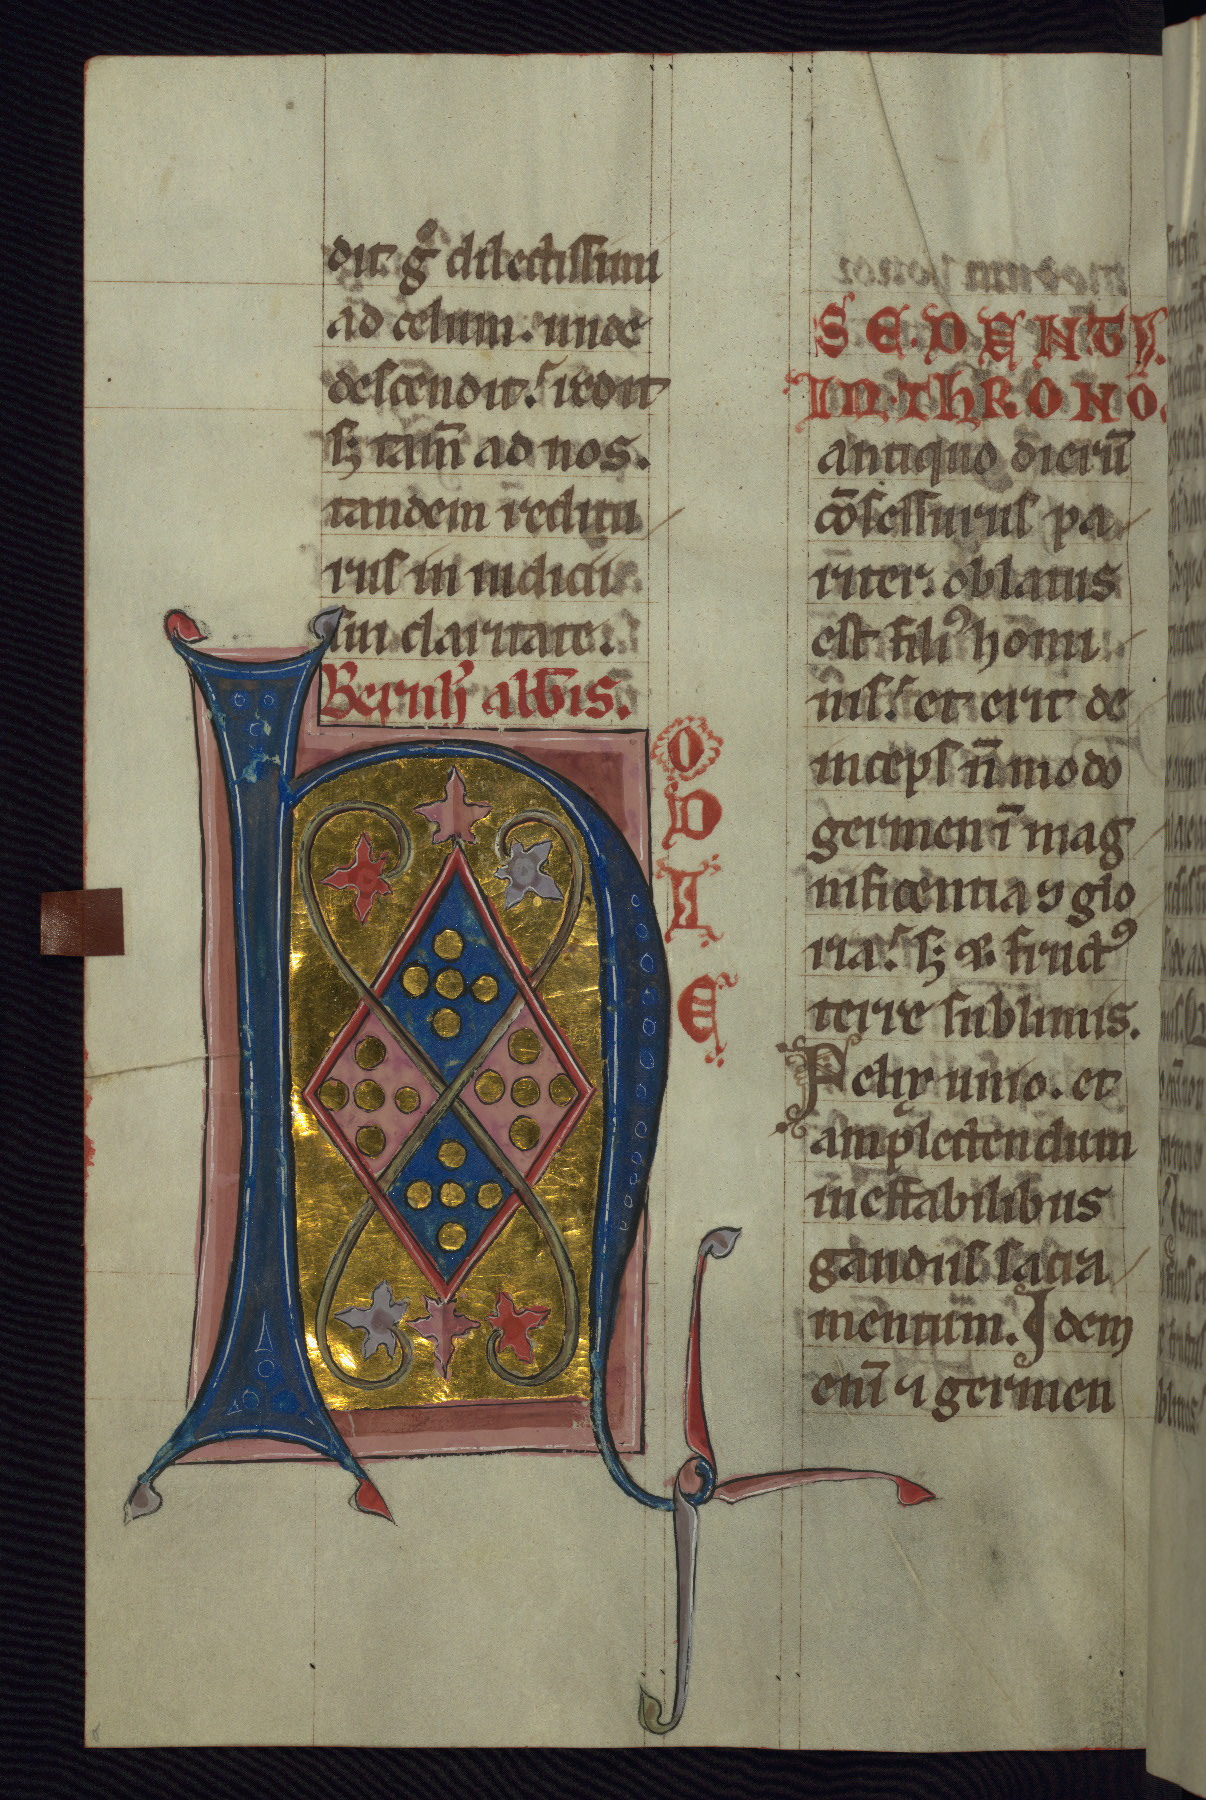 dit gͦ dilectissimi
ad celum. unde
descendit. redit
sꝫ tam̄ ad nos.
tandem r̄editu
rus in iudicii
sui claritate.
Bernħ abb̄is.
HODIE
SEDENTI
IN THRONO.
antiquo dierū
cōsessurus pa
riter. oblatus
est filiꝰ homi
nis. et erit de
inceps n̄ modo
germen ī mag
nificentia ⁊ glo
ria. sꝫ ⁊ fructꝰ
terre sublimis.
Felix unio. et
amplectendum
ineffabilibus
gaudiis sacra
mentum. Idem
eni̅ ⁊ germen